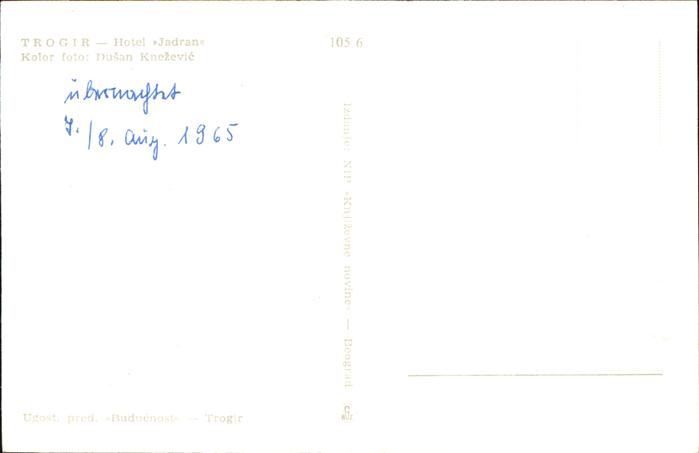 TROGIR — Hotel »Jadran«
Kolor foto: Dušan Knežević
105 6
übernachtet
7./8. Aug. 1965
Izdanje: NIP »Književne novine« — Beograd
Ugost. pred. »Budućnost« — Trogir